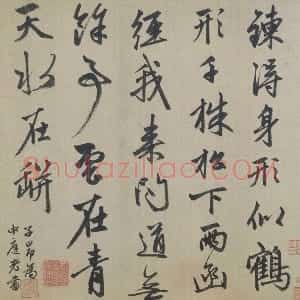 鍊得身形似鶴
形千株松下兩函
經我来問道無
餘事雲在青
天水在瓶
子昂為
中庭老書
Shufaziliao.com